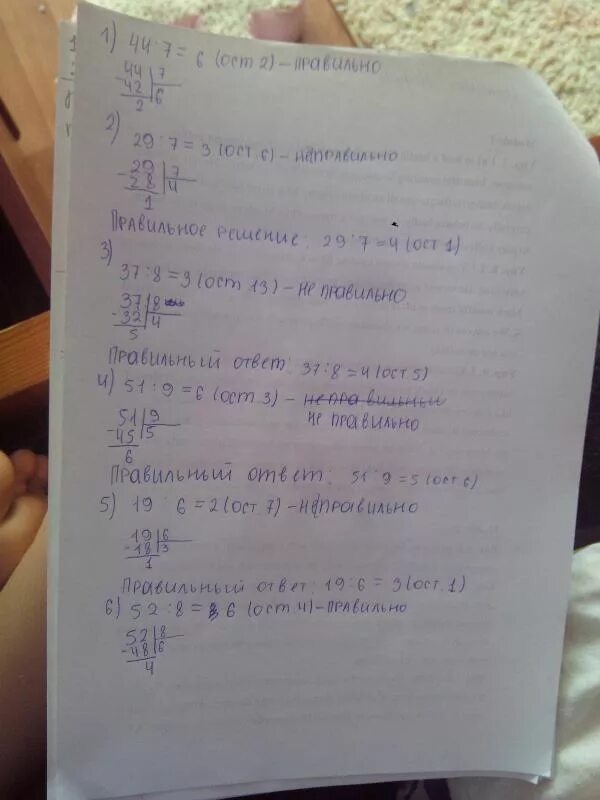 1) 44 : 7 = 6 (ост 2) – правильно
44 | 7
- 42 | 6
2
2)
29 : 7 = 3 (ост. 6) – неправильно
29 | 7
- 28 | 4
1
Правильное решение: 29 : 7 = 4 (ост 1)
3)
37 : 8 = 3 (ост. 13) – не правильно
37 | 8
- 32 | 4
5
Правильный ответ: 37 : 8 = 4 (ост. 5)
4) 51 : 9 = 6 (ост. 3) – неправильны
не правильно
51 | 9
- 45 | 5
6
Правильный ответ: 51 : 9 = 5 (ост. 6)
5) 19 : 6 = 2 (ост. 7) – неправильно
19 | 6
- 18 | 3
1
Правильный ответ: 19 : 6 = 3 (ост. 1)
6) 52 : 8 = 6 (ост. 4) – правильно
52 | 8
- 48 | 6
4